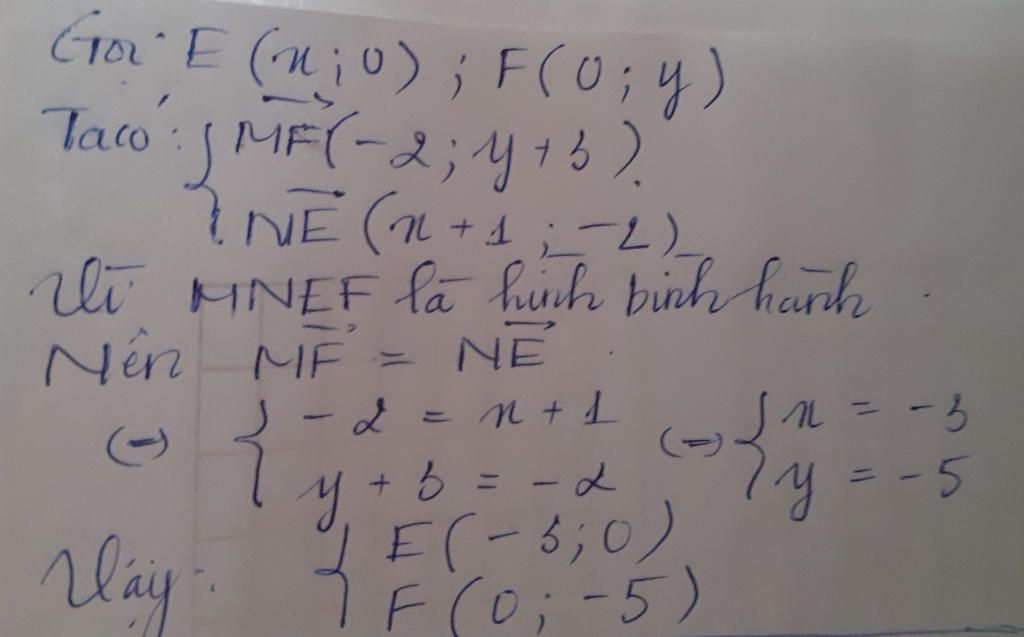 Gọi: E (x; 0) ; F(0; y)
Ta có: { MF→(-2; y+3)
NE→ (x+1; -2)
Vì MNEF là hình bình hành
Nên MF→ = NE→
(=) { -2 = x + 1 (=) { x = -3
y + 3 = -2 y = -5
Vậy: { E(-3; 0)
F(0; -5)